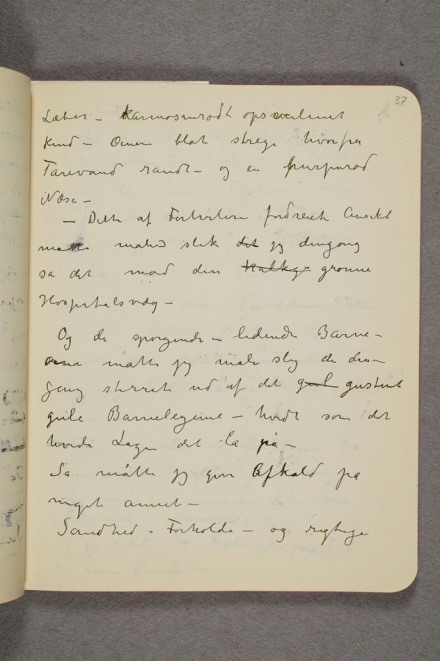 37
Læber – Karmosinrødt opsvulmet
Kind – Øinen blot strege hvorfra
Tarevand randt – og en purpurød
Næse –
– Dette af Fortvivlelsen fordreiede Ansikt
måtte males slik det jeg dengang
så det mod den kalkge grønne
Hospitalsvæg –
Og de spørgende – lidende Barne-
øine måtte jeg male slig de den-
gang stirret ud af det gul gustent
gule Barnelegeme – hvidt som det
hvide Lagen det lå på –
Så måtte jeg give Afkald på
meget annet –
Sandhed i Forholde – og rigtige